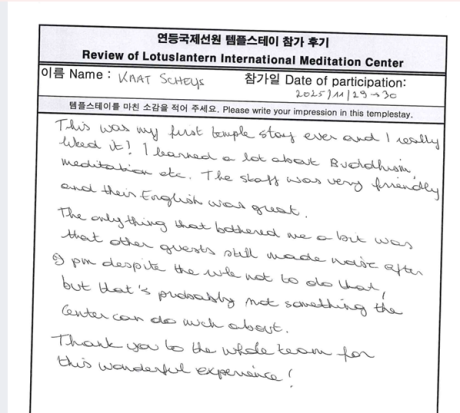 연등국제선원 템플스테이 참가 후기
Review of Lotuslantern International Meditation Center
이름 Name : KAAT SCHEYS
참가일 Date of participation:
2025/11/29→30
템플스테이를 마친 소감을 적어 주세요. Please write your impression in this templestay.
This was my first temple stay ever and I really
liked it! I learned a lot about Buddhism,
meditation etc. The staff was very friendly
and their English was great.
The only thing that bothered me a bit was
that other guests still made noise after
9 pm despite the rule not to do that,
but that's probably not something the
center can do much about.
Thank you to the whole team for
this wonderful experience!